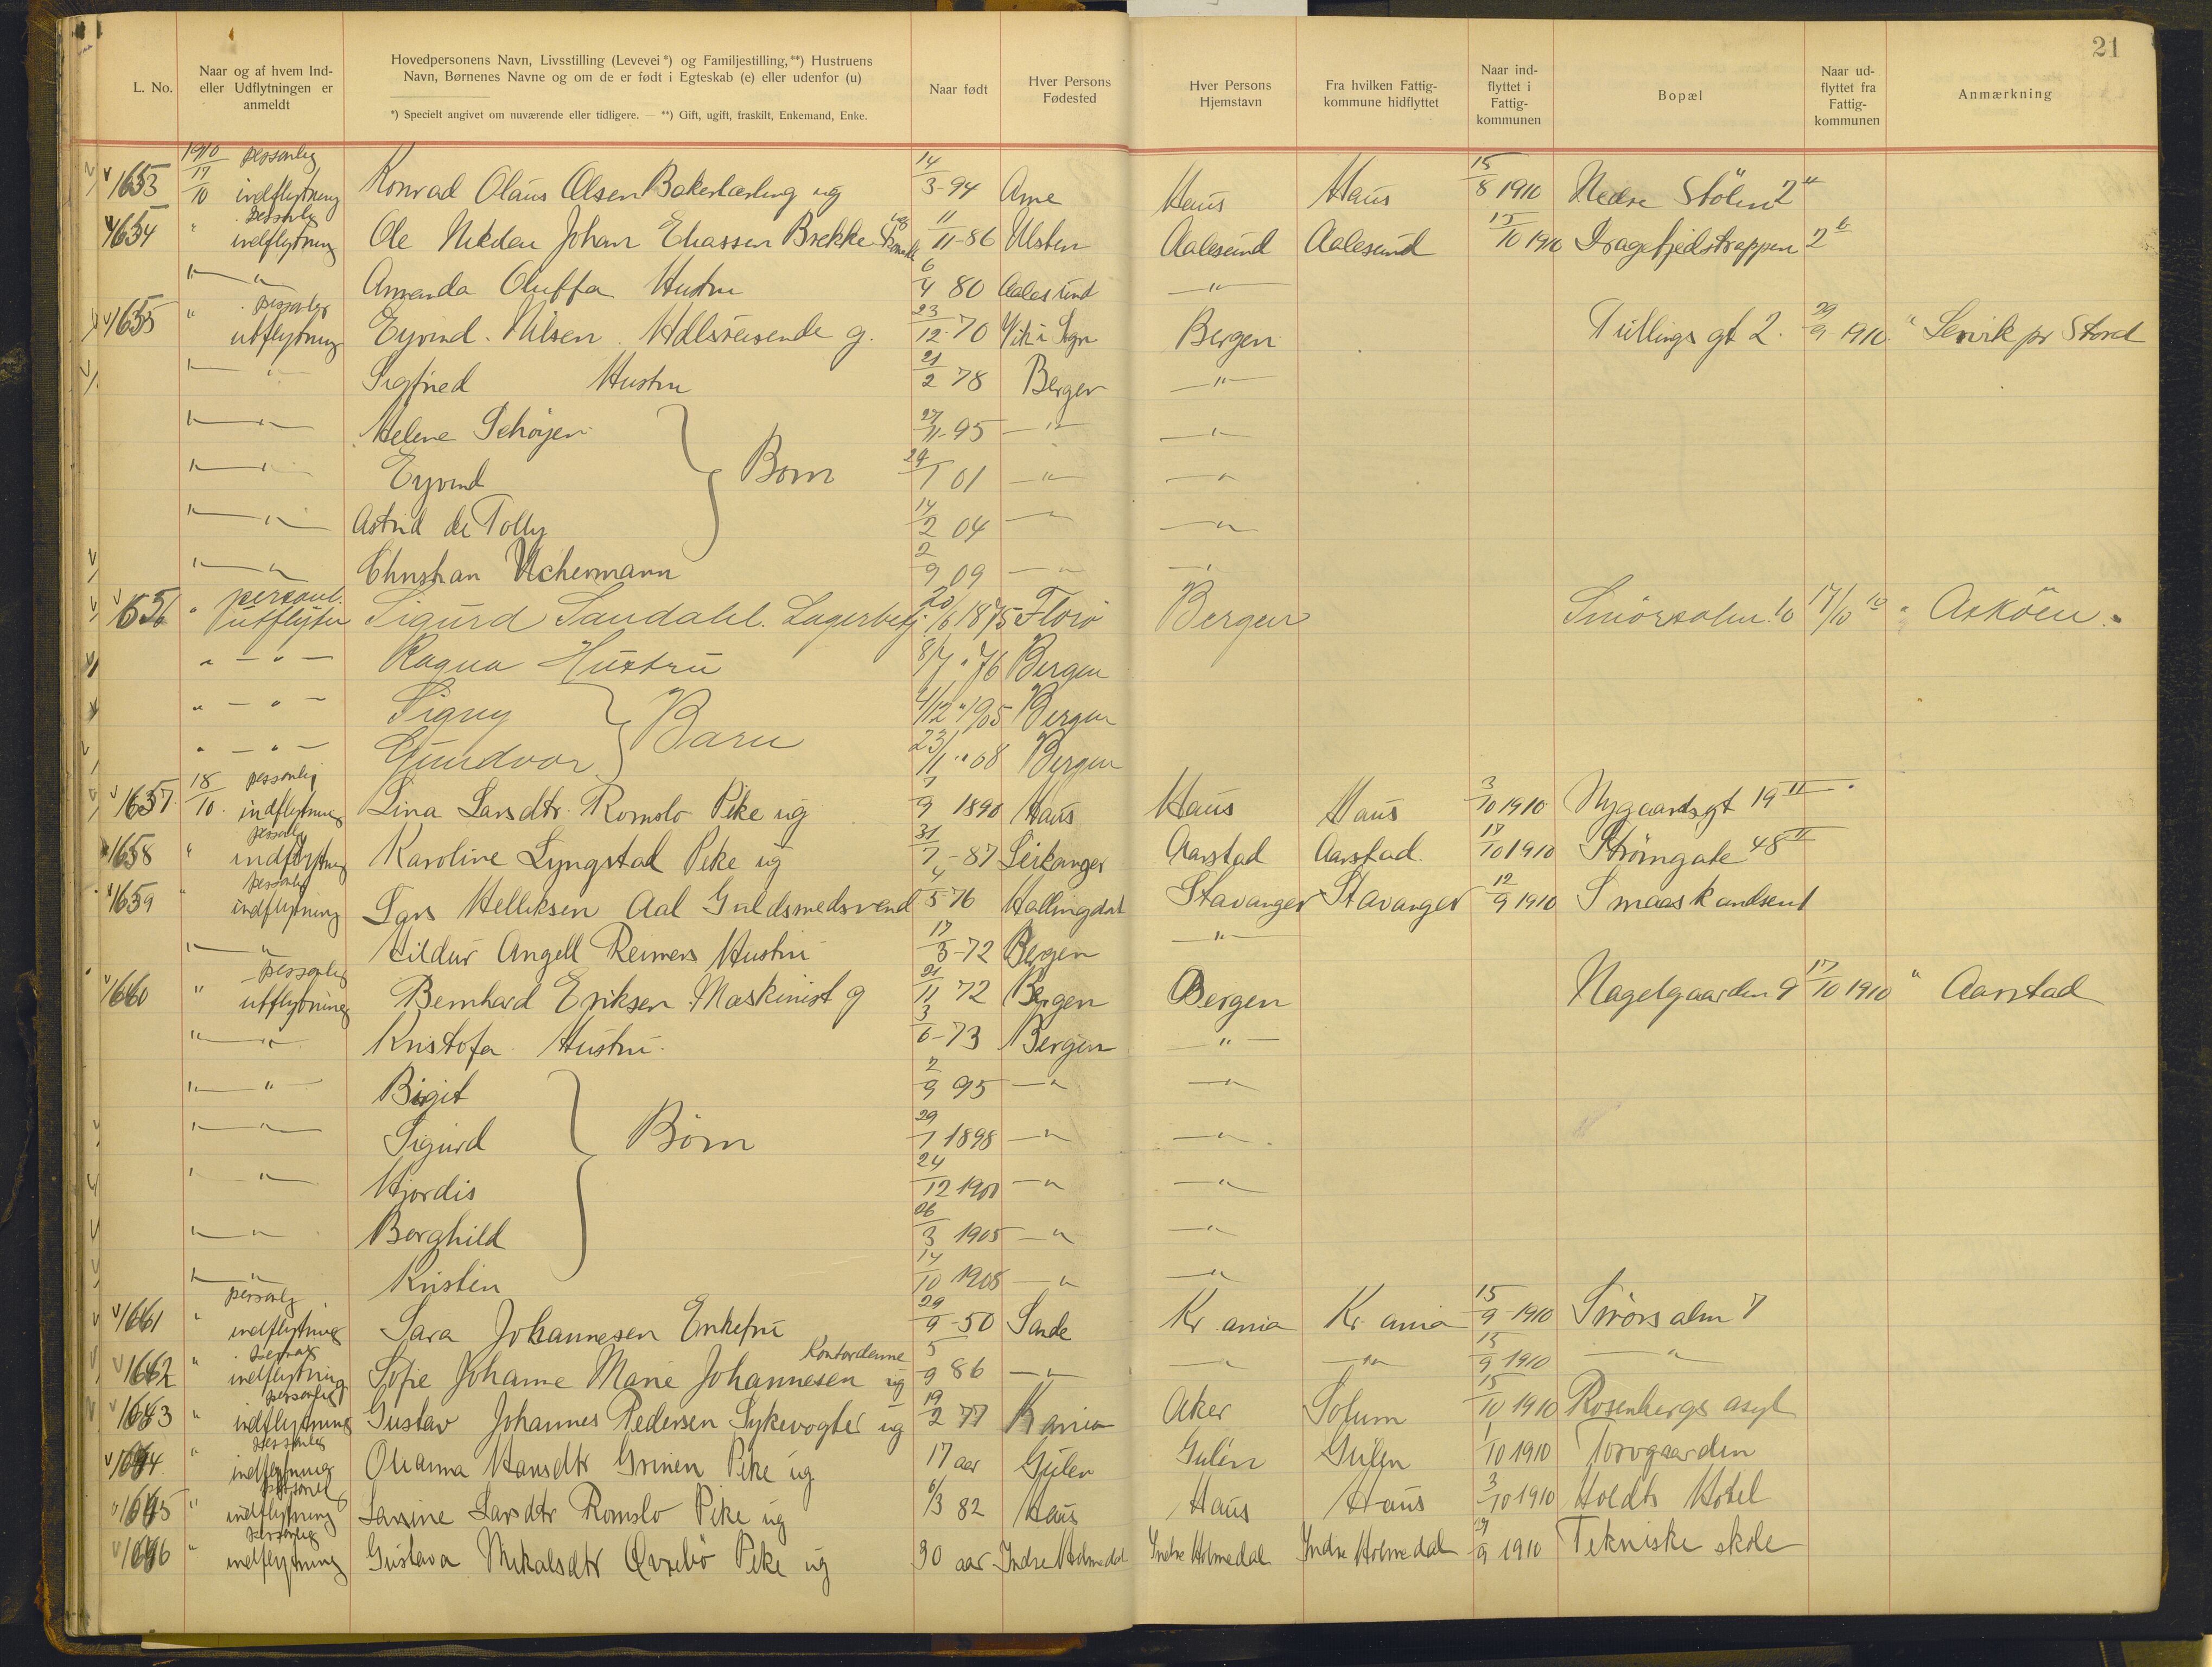 21
L. No.
Naar og af hvem Ind- eller Udflytningen er anmeldt
Hovedpersonens Navn, Livsstilling (Levevei *) og Familjestilling, **) Hustruens Navn, Børnenes Navne og om de er født i Egteskab (e) eller udenfor (u)
*) Specielt angivet om nuværende eller tidligere. — **) Gift, ugift, fraskilt, Enkemand, Enke.
Naar født
Hver Persons Fødested
Hver Persons Hjemstavn
Fra hvilken Fattig- kommune hidflyttet
Naar ind- flyttet i Fattig- kommunen
Bopæl
Naar ud- flyttet fra Fattig- kommunen
Anmærkning
1653 1910 17/10 personlig indflytning Konrad Olaus Olsen Bakerlærling ug 14/3-94 Arne Haus Haus 15/8 1910 Nedre Stölen 2
1654 " personlig indflytning Ole Johan Eliassen Brekke 11/11-86 Ulsten Aalesund Aalesund 15/10 1910 Dragefjeldstrappen 2
" Amanda Oluffa Hustru 6/4 80 Aalesund "
1655 " personlig utflytning Eyvind Nilsen Hdlsreisende g. 23/12-70 Vik i Sogn Bergen Tullings gt 2. 29/9 1910 " Leirvik pr Stord
" Sigfried Hustru 21/2 78 Bergen "
" Helene Schöyen 27/11-95 " "
" Eyvind Born 24/1 01 " "
" Astrid de Tolly 14/2 04 " "
" Christian Uchermann 2/9 09 " "
1656 " personl. utflytn Sigurd Sandahl. Lagerbetj. 20/6 1875 Florö Bergen Smörsalm. 10 17/10 10 " Asköen.
" — " — Ragna Hustru 8/7 " 76 Bergen
" — " — Signy 4/12 " 1905 Bergen
" — " — Gundvor Barn 23/11 " 08 Bergen
1657 18/10 personlig indflytning Lina Larsdtr. Romslo Pike ug 7/9 1890 Haus Haus Haus 3/10 1910 Nygaardsgt 19 II
1658 " personlig indflytning Karoline Lyngstad Pike ug 31/7-87 Leikanger Aarstad Aarstad. 17/10 1910 Strömgate 48 II
1659 " personlig indflytning Lars Helliksen Aal Guldsmedsvend 4/5 76 Hallingdal Stavanger Stavanger 12/9 1910
" Hildur Angell Reimers Hustru 17/3-72 Bergen "
1660 " personlig utflytning Bernhard Eriksen Maskinist g 21/11 72 Bergen Bergen Nagelgaarden 9 17/10 1910 " Aarstad
" Kristofa Hustru. 3/6-73 Bergen "
" " Birgit 2/9 95 " "
" Sigurd Börn 29/1 1898 " "
" Hjordis 24/12 1900 " "
" Borghild 26/3 1905 " "
" Kristen 14/10 1908 " "
1661 " personlig indflytning Sara Johannesen Enkefru 29/9-50 Sande Kr. ania Kr. ania 15/9-1910 Smörsalm 7
1662 " personlig indflytning Sofie Johanne Marie Johannesen Kontordame ug 5/9 86 " " " 15/9 1910 "
1643 " personlig indflytning Gustav Johannes Pedersen Sykevogter ug 19/2 77 Kr ania Aker Solum 15/10 1910 Rosenbergs asyl
1644 " personlig indflytning Olianna Hansdtr Grinen Pike ug 17 aar Gulen Gulen Gulen 1/10 1910 Torvgaarden
1645 " personlig indflytning Larsine Larsdtr Romslo Pike ug 6/3 82 Haus Haus Haus 3/10 1910 Holdts Hotel
1646 " personlig indflytning Gustava Mikalsdtr Övrebö Pike ug 30 aar Indre Holmedal Indre Holmedal Indre Holmedal 29/9 1910 Tekniske skole